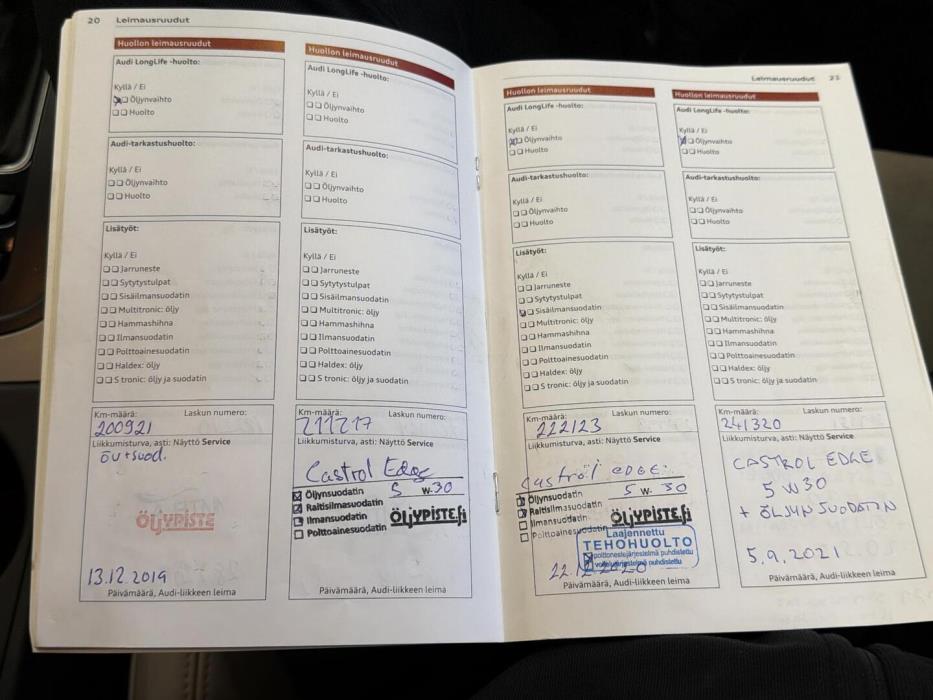 20 Leimausruudut
Huollon leimausruudut
Audi LongLife -huolto:
Kyllä / Ei
Öljynvaihto
Huolto
Audi-tarkastushuolto:
Kyllä / Ei
Öljynvaihto
Huolto
Lisätyöt:
Kyllä / Ei
Jarruneste
Sytytystulpat
Sisäilmansuodatin
Multitronic: öljy
Hammashihna
Ilmansuodatin
Polttoainesuodatin
Haldex: öljy
S tronic: öljy ja suodatin
Km-määrä: Laskun numero:
200921
Liikkumisturva, asti: Näyttö Service
öv+suod.
ÖLJYPISTE
13.12.2019
Päivämäärä, Audi-liikkeen leima
Huollon leimausruudut
Audi LongLife -huolto:
Kyllä / Ei
Öljynvaihto
Huolto
Audi-tarkastushuolto:
Kyllä / Ei
Öljynvaihto
Huolto
Lisätyöt:
Kyllä / Ei
Jarruneste
Sytytystulpat
Sisäilmansuodatin
Multitronic: öljy
Hammashihna
Ilmansuodatin
Polttoainesuodatin
Haldex: öljy
S tronic: öljy ja suodatin
Km-määrä: Laskun numero:
211217
Liikkumisturva, asti: Näyttö Service
Castrol Edge
5 W-30
Öljynsuodatin
Raitisilmasuodatin
Ilmansuodatin
Polttoainesuodatin
ÖLJYPISTE.fi
Päivämäärä, Audi-liikkeen leima
Leimausruudut
Huollon leimausruudut
Audi LongLife -huolto:
Kyllä / Ei
Öljynvaihto
Huolto
Audi-tarkastushuolto:
Kyllä / Ei
Öljynvaihto
Huolto
Lisätyöt:
Kyllä / Ei
Jarruneste
Sytytystulpat
Sisäilmansuodatin
Multitronic: öljy
Hammashihna
Ilmansuodatin
Polttoainesuodatin
Haldex: öljy
S tronic: öljy ja suodatin
Km-määrä: Laskun numero:
222123
Liikkumisturva, asti: Näyttö Service
Castrol EDGE
5 W- 30
Öljynsuodatin
Raitisilmasuodatin
Ilmansuodatin
Polttoainesuodatin
ÖLJYPISTE.fi
Laajennettu
TEHOHUOLTO
polttonestejärjestelmä puhdistettu
voitelujärjestelmä puhdistettu
Päivämäärä, Audi-liikkeen leima
Huollon leimausruudut
Audi LongLife -huolto:
Kyllä / Ei
Öljynvaihto
Huolto
Audi-tarkastushuolto:
Kyllä / Ei
Öljynvaihto
Huolto
Lisätyöt:
Kyllä / Ei
Jarruneste
Sytytystulpat
Sisäilmansuodatin
Multitronic: öljy
Hammashihna
Ilmansuodatin
Polttoainesuodatin
Haldex: öljy
S tronic: öljy ja suodatin
Km-määrä: Laskun numero:
241320
Liikkumisturva, asti: Näyttö Service
CASTROL EDGE
5 W30
+ ÖLJYN SUODATIN
5.9.2021
Päivämäärä, Audi-liikkeen leima